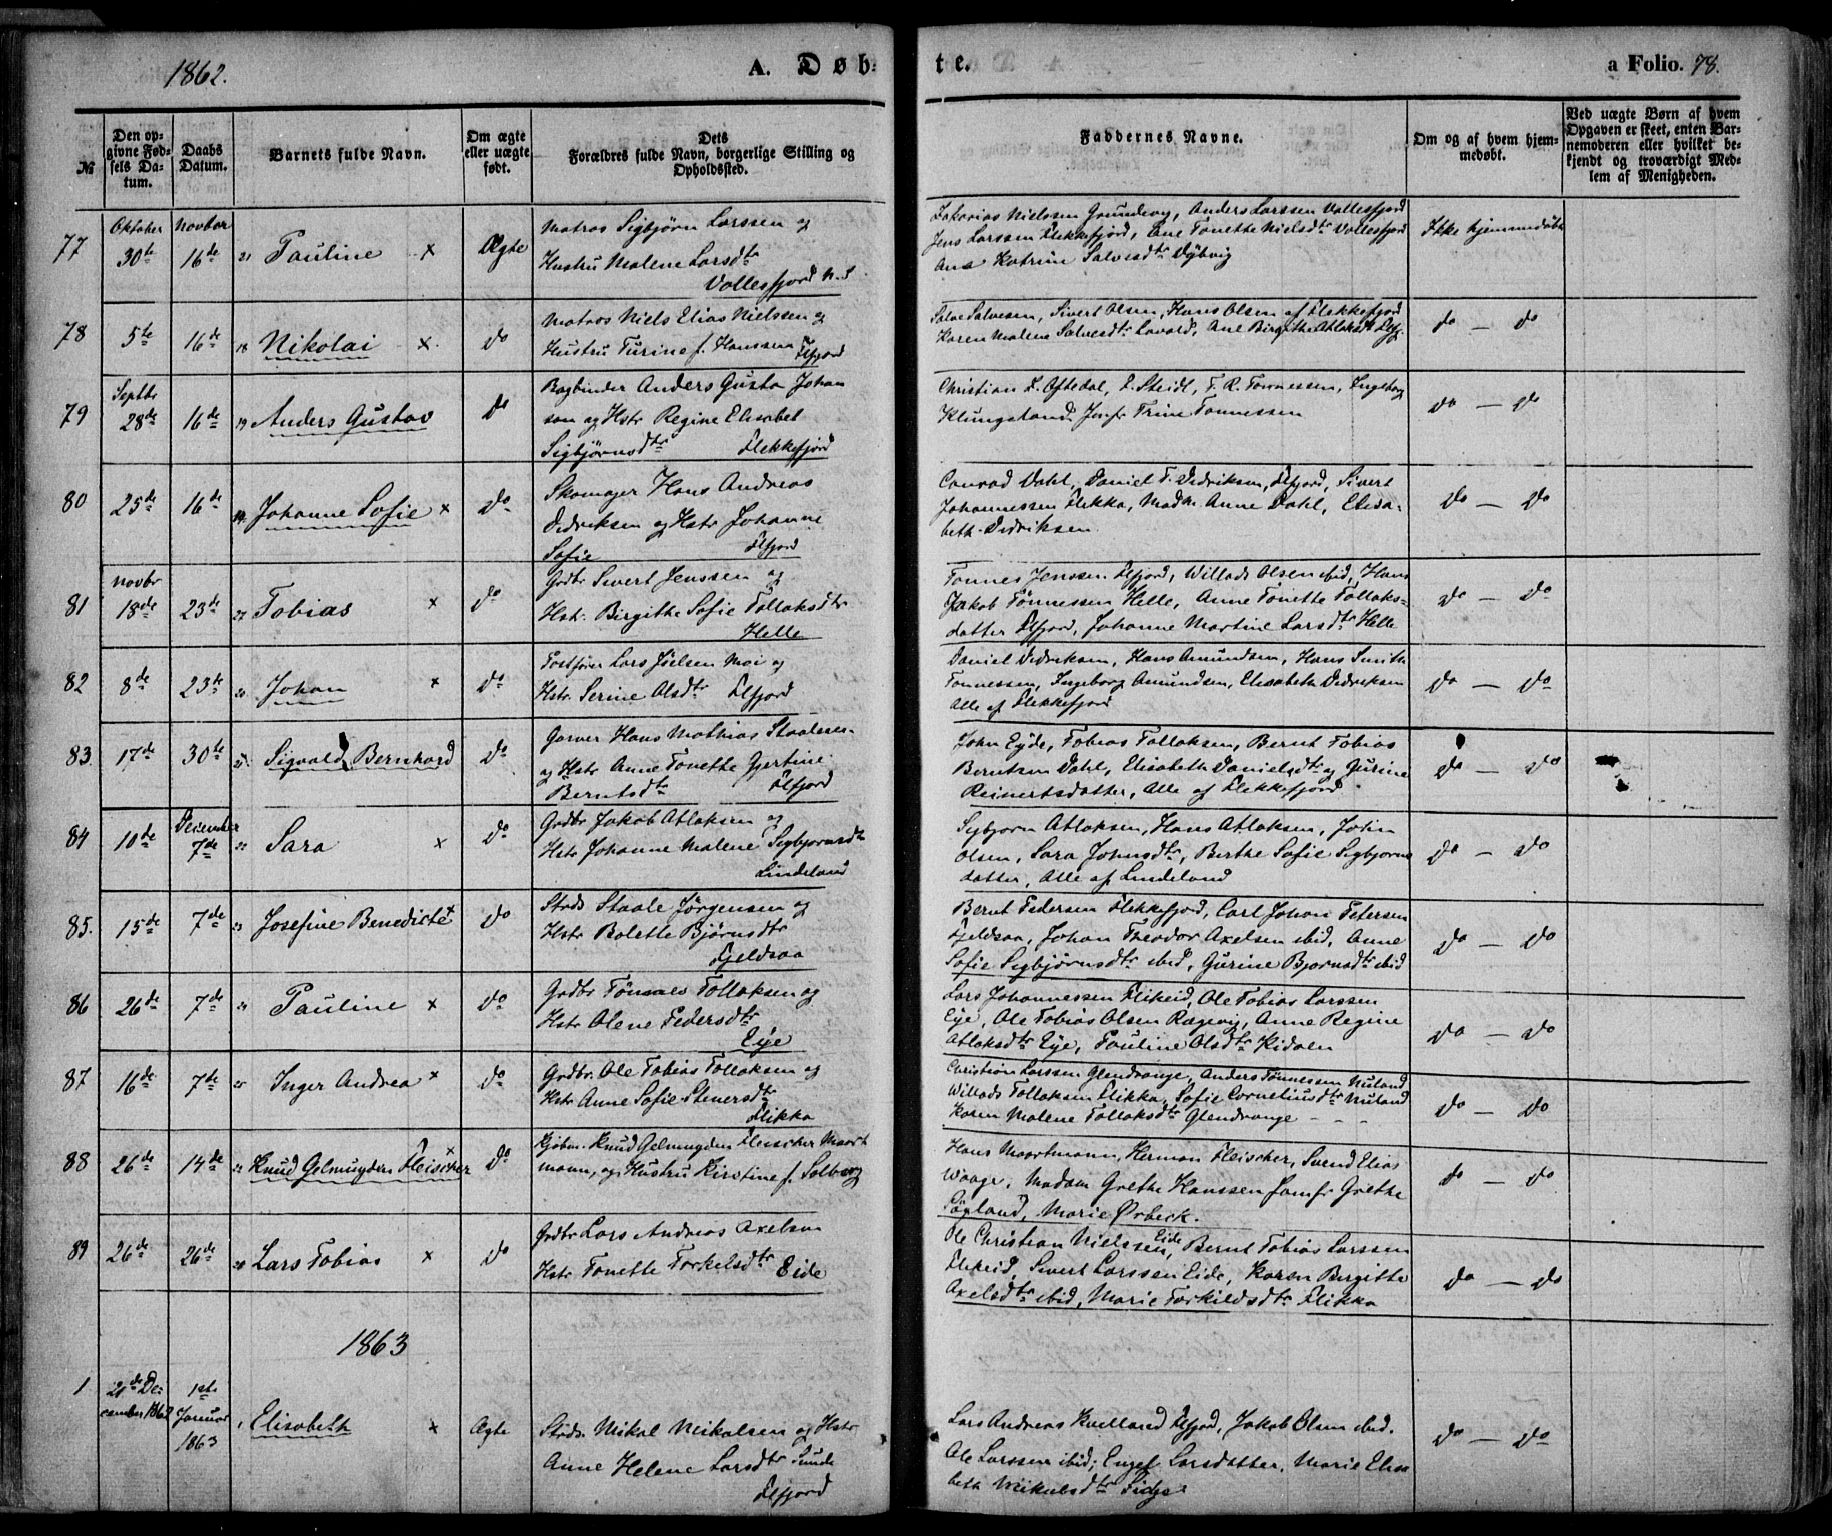 1862.
A. Døb-
te.
a Folio. 78.
№
Den op-
givne Fød-
sels Da-
tum.
Daabs
Datum.
Barnets fulde Navn.
Om ægte
eller uægte
født.
Dets
Forældres fulde Navn, borgerlige Stilling og
Opholdssted.
Faddernes Navne.
Om og af hvem hjem-
medøbt.
Ved uægte Børn af hvem
Opgaven er skeet, enten Bar-
nemoderen eller hvilket be-
kjendt og troværdigt Med-
lem af Menigheden.
77
Oktober
30te
Novbor
16de
21 Pauline x
Ægte
Matros Sigbjörn Larssen og
Hustru Malene Larsdtr
Vollesfjord N.S
Zakarias Nielssen Grundevig, Anders Larssen Vollesfjord
Jens Larssen Flekkefjord, Ane Tonette Nielsdtr Vollesfjord
Ana Katrine Salvesdtr Dybvig
Ikke hjemmedøbt
78
5te
16de
18 Nikolai x
do
Matros Niels Elias Nielssen og
Hustru Turine f. Hanssen Flfjord
Salve Salvesen, Sivert Olsen, Hans Olsen af Flekkefjord
Karen Malene Salvesdtr Lavold, Ane Birgithe Atlaksdtr Flfj.
do — do
79
Septbr
28de
16de
19 Anders Gustav
do
Bogbinder Anders Gusta Johan
son og Hstr Regine Elisabet
Sigbjörnsdtr Flekkefjord
Christian L. Oftedal, L. Steidt, T. R. Tonnessen, Ingeborg
Klungeland, Jomfr Trine Tonnessen
do — do
80
25de
16de
Johanne Sofie x
do
Skomager Hans Andreas
Didriksen og Hstr Johanne
Sofie Flfjord
Conrad Dahl, Daniel T. Didriksen, Flfjord, Sivert
Johannessen Flikka, Madm Anne Dahl, Elisa-
beth Didriksen
do — do
81
Novbr
18de
23de
Tobias x
do
Grdbr Sivert Jenssen og
Hstr. Birgithe Sofie Tollaksdtr
Helle
Tonnes Jenssen Flfjord, Willads Olsen ibid, Hans
Jakob Tönnessen Helle, Anne Tonette Tollaks-
datter Flfjord, Johanne Martine Larsdtr Helle
do — do
82
8de
23de
20 Johan x
do
Postfører Lars Joelsen Moi og
Hstr Serine Olsdtr Flfjord
Daniel Didriksen, Hans Amundsen, Hans Smith
Tonnessen, Ingeborg Amundsen, Elisabeth Didriksen
Alle af Flekkefjord
do — do
83.
17de
30te
Sigvald Bernhard
do
Garver Hans Mathias Staalesen
og Hstr Anne Tonette Gjertine
Berntsdtr Flfjord
John Eyde, Tobias Tollaksen, Bernt Tobias
Berntsen Dahl, Elisabeth Danielsdtr og Gurine
Reinertsdatter, Alle af Flekkefjord
do — do
84
10de
Decembr
7de
22 Sara x
do
Grdbr Jakob Atlaksen og
Hstr Johanne Malene Sigbjornsdtr
Lindeland
Sigbjorn Atlaksen, Hans Atlaksen, John
Olsen, Sara Johnsdtr, Berthe Sofie Sigbjorns
datter, Alle af Lindeland
do — do
85.
15de
7de
23 Josefine Benedicte x
do
Strds Staale Jörgensen og
Hstr Bolette Björnsdtr
Fjeldsaa
Bernt Pedersen Flekkefjord, Carl Johan Petersen
Fjeldsaa, Johan Theodor Axelsen ibid, Anne
Sofie Sigbjörnsdtr ibid, Gurine Bjornsdtr ibid
do — do
86
26de
7de
24 Pauline x
do
Grdbr Tönnes Tollaksen og
Hstr Olene Pedersdtr
Eye
Lars Johannessen Flikeid, Ole Tobias Larssen
Eye, Ole Tobias Olsen Rægevig, Anne Regine
Atlaksdtr Eye, Pauline Olsdtr Kidalen
do — do
87
16de
7de
25 Inger Andrea x
do
Grdbr. Ole Tobias Tollaksen og
Hstr Anne Sofie Stenersdtr
Flikka
Christian Larssen Glendrange, Anders Tönnessen Nuland
Willads Tollaksen Flikka, Sofie Corneliusdtr Nuland
Karen Malene Tollaksdtr Glendrange
do — do
88
26de
14de
Knud Gelmuyden Fleischer x
do
Kjøbm. Knud Gelmuyden Fleischer Maart
mann, og Hustru Kirstine f. Solberg
Hans Maartmann, Herman Fleischer, Svend Elias
Waage, Madam Grethe Hanssen Jomfr Grethe
Søyland, Marie Ørbeck.
do — do
89
26de
26de
Lars Tobias x
do
Grdbr Lars Andreas Axelsen
Hstr Tonette Torkelsdtr Eide
Ole Christian Nielssen Eide, Bernt Tobias Larssen
Flikeid, Sivert Larssen Eide, Karen Birgitte
Axelsdtr ibid, Marie Torkildsdtr Flikka
do — do
1863
1
21de De-
cember 1862
1ste
Januar
1863
1 Elisabeth x
Ægte
Strds. Mikal Mikalsen og Hstr
Anne Helene Larsdtr Sunde
Flfjord
Lars Andreas Kvelland Flfjord, Jakob Olsen ibid.
Ole Larssen ibid; Engel Larsdatter, Marie Elisa
beth Mikalsdtr Fidje
do — do